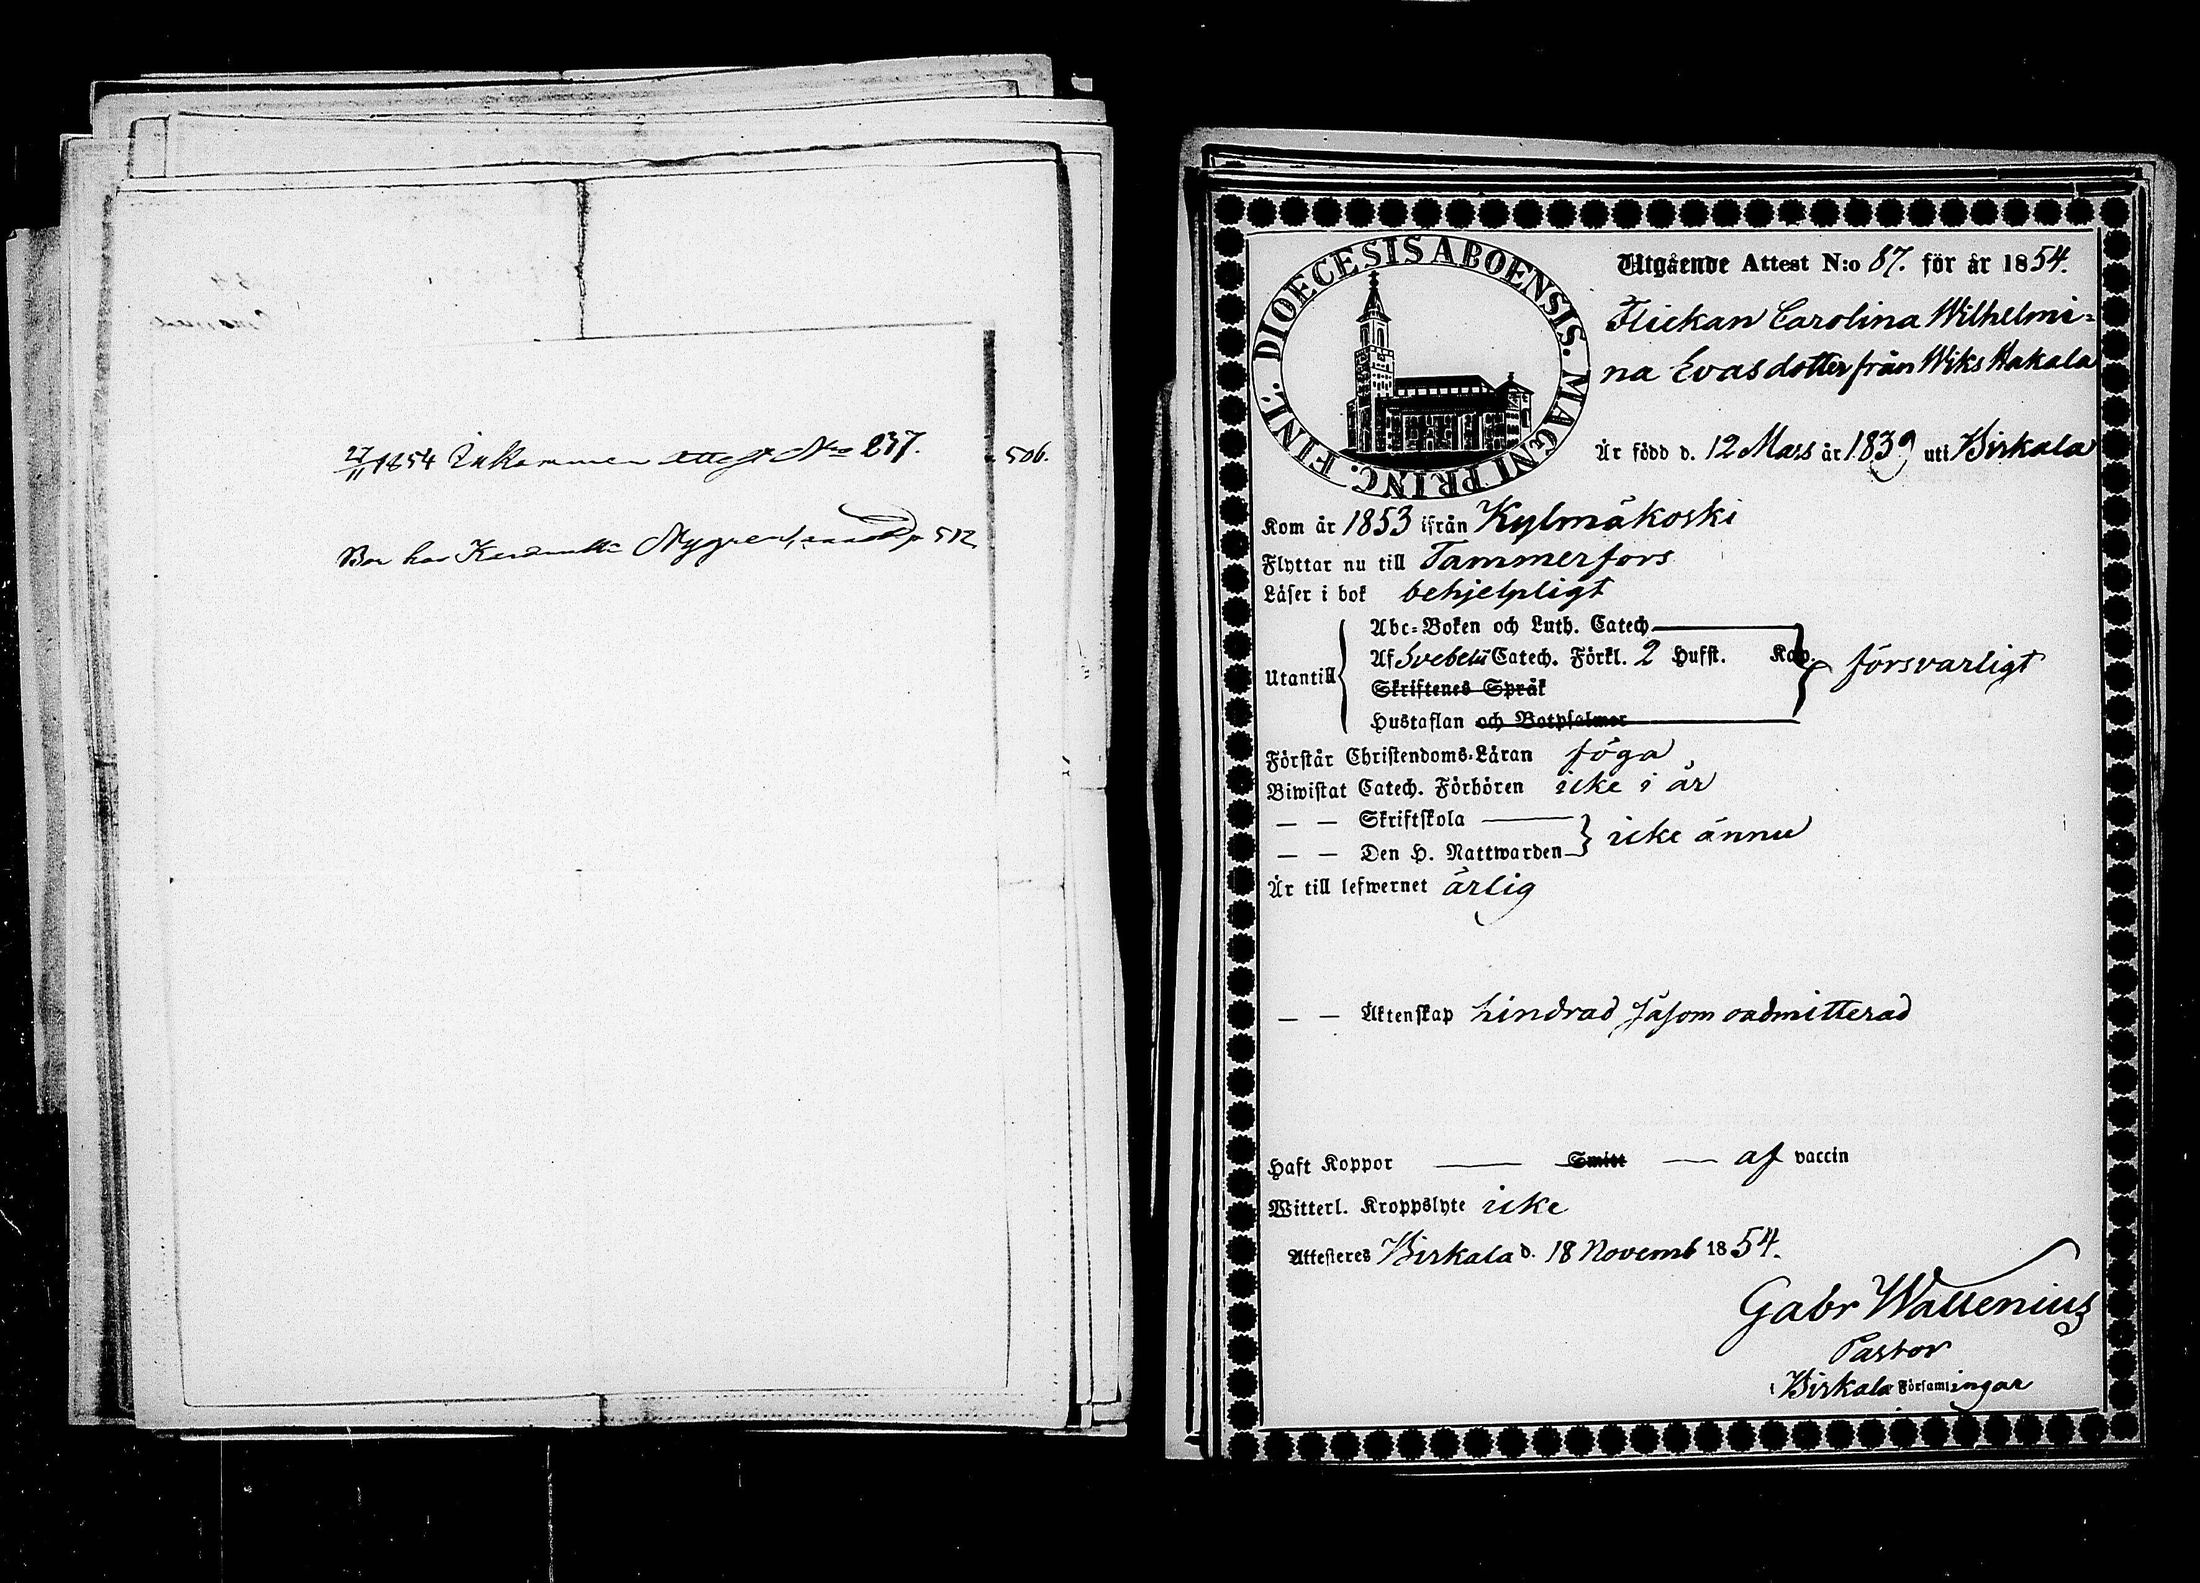 27/11 1854 Inkommen Attest No 237.
506.
Bor hos Nygren p. 512
DIOECESIS ABOENSIS. MAGNI PRINC. FINL.
Utgående Attest N:o 87. för år 1854.
Flickan Carolina Wilhelmi=
na Evasdotter från Wiks Hakala
Är född d. 12 Mars år 1839 uti Birkala
Kom år 1853 ifrån Kylmäkoski
Flyttar nu till Tammerfors
Läser i bok behjelpligt
Utantill
Abc=Boken och Luth. Catech.
Af Svebelii Catech. Förkl. 2 Hufst. Kap.
Skriftenes Språk
Hustaflan och Botpsalmer
försvarligt
Förstår Christendoms=Läran föga
Biwistat Catech. Förhören icke i år
— — Skriftskola
— — Den H. Nattwarden
icke ännu
Är till lefwernet ärlig
— — Äktenskap hindrad såsom oadmitterad
Haft Koppor — Smitt — af vaccin
Witterl. Kroppslyte icke
Attesteres Birkala d. 18 Novemb 1854.
Gabr Wallenius
Pastor
i Birkala Församlingar